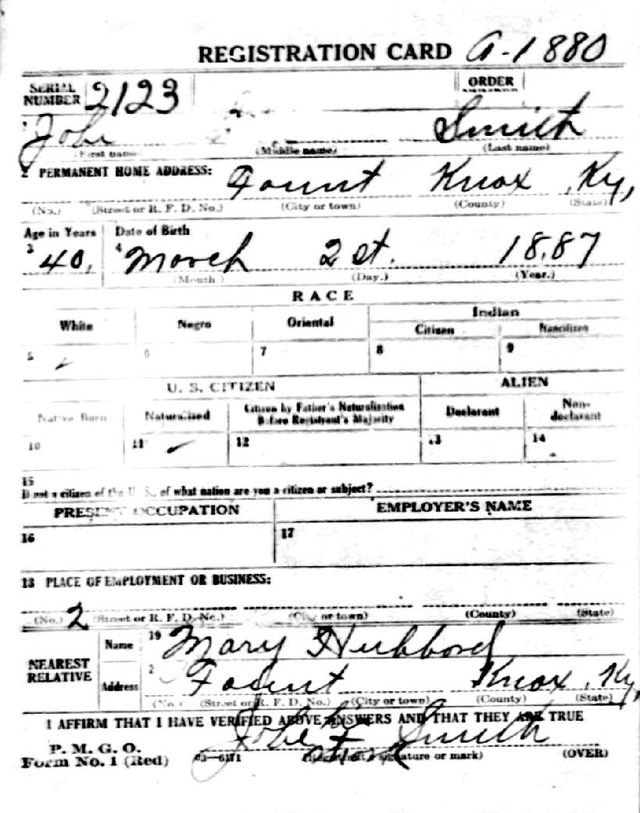 REGISTRATION CARD A-1880
SERIAL NUMBER 2123 ORDER
Jobe Smith
First name (Middle name) (Last name)
2 PERMANENT HOME ADDRESS: Fount Knox Ky,
(No.) (Street or R. F. D. No.) (City or town) (County) (State)
Age in Years Date of Birth
3 40, 4 March 2 st. 1887
(Month) (Day.) (Year.)
RACE
White Negro Oriental Indian
Citizen Noncitizen
5 ✓ 6 7 8 9
U. S. CITIZEN ALIEN
Native Born Naturalized Citizen by Father's Naturalization Before Registrant's Majority Declarant Non-declarant
10 11 ✓ 12 13 14
15
If not a citizen of the U. S., of what nation are you a citizen or subject?
PRESENT OCCUPATION EMPLOYER'S NAME
16 17
18 PLACE OF EMPLOYMENT OR BUSINESS:
2
(No.) (Street or R. F. D. No.) (City or town) (County) (State)
NEAREST RELATIVE Name 19 Mary Hubbord
Address 2 Fount Knox, Ky
(No.) (Street or R. F. D. No.) (City or town) (County) (State)
I AFFIRM THAT I HAVE VERIFIED ABOVE ANSWERS AND THAT THEY ARE TRUE
Jobe Smith
P. M. G. O.
Form No. 1 (Red) 03—6171 (Registrant's signature or mark) (OVER)